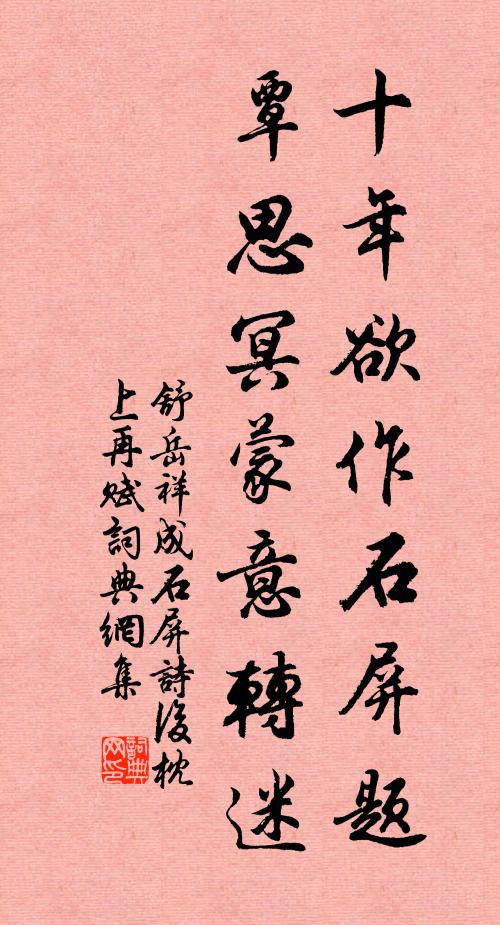 十年欲作石屏题
覃思冥蒙意轉迷
舒岳祥成石屏詩後枕
上再赋詞典網集
詞典
网印